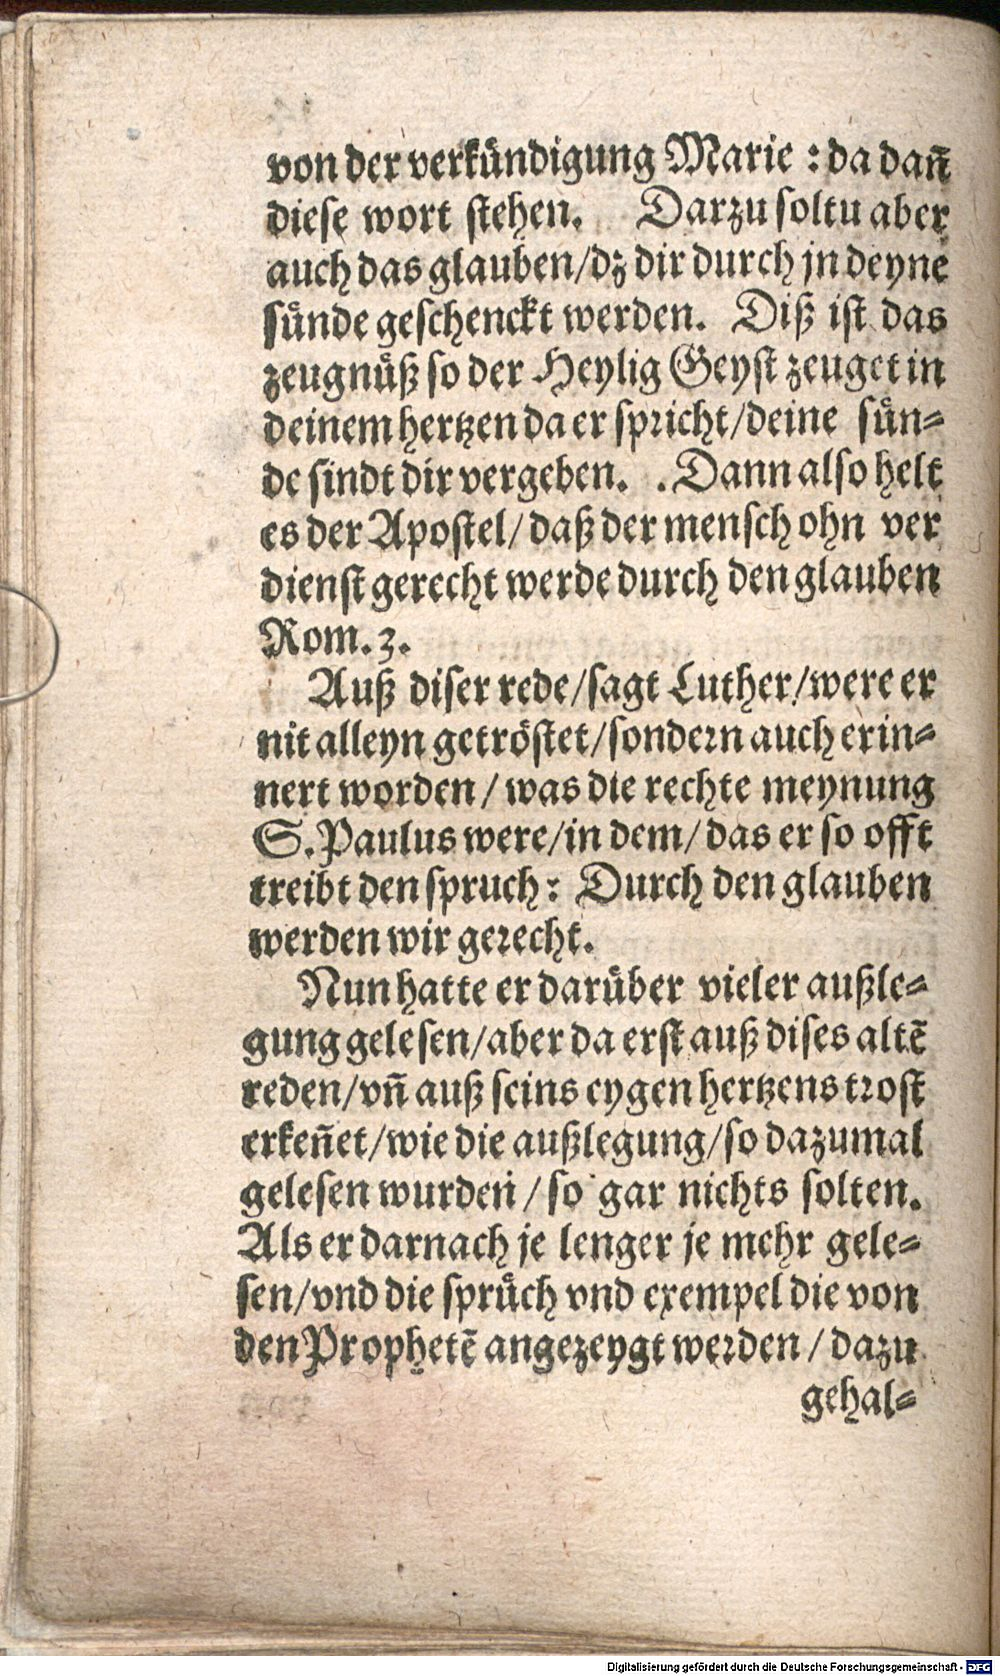 von der verkündigung Marie : da dañ
diese wort stehen. Darzu soltu aber
auch das glauben/dz dir durch jn deyne
sünde geschenckt werden. Diß ist das
zeugnüß so der Heylig Geyst zeuget in
deinem hertzen da er spricht/deine sün⸗
de sindt dir vergeben. .Dann also helt
es der Apostel/ daß der mensch ohn ver
dienst gerecht werde durch den glauben
Rom. 3.
Auß diser rede/sagt Luther/were er
nit alleyn getröstet/sondern auch erin⸗
nert worden / was die rechte meynung
S. Paulus were/in dem/ das er so offt
treibt den spruch: Durch den glauben
werden wir gerecht.
Nun hatte er darüber vieler außle⸗
gung gelesen/aber da erst auß dises altẽ
reden/vñ auß seins eygen hertzens trost
erkeñet/wie die außlegung/so dazumal
gelesen wurden / so gar nichts solten.
Als er darnach je lenger je mehr gele⸗
sen/vnd die sprüch vnd exempel die von
den Prophetẽ angezeygt werden / dazu
gehal⸗
Digitalisierung gefördert durch die Deutsche Forschungsgemeinschaft - DFG